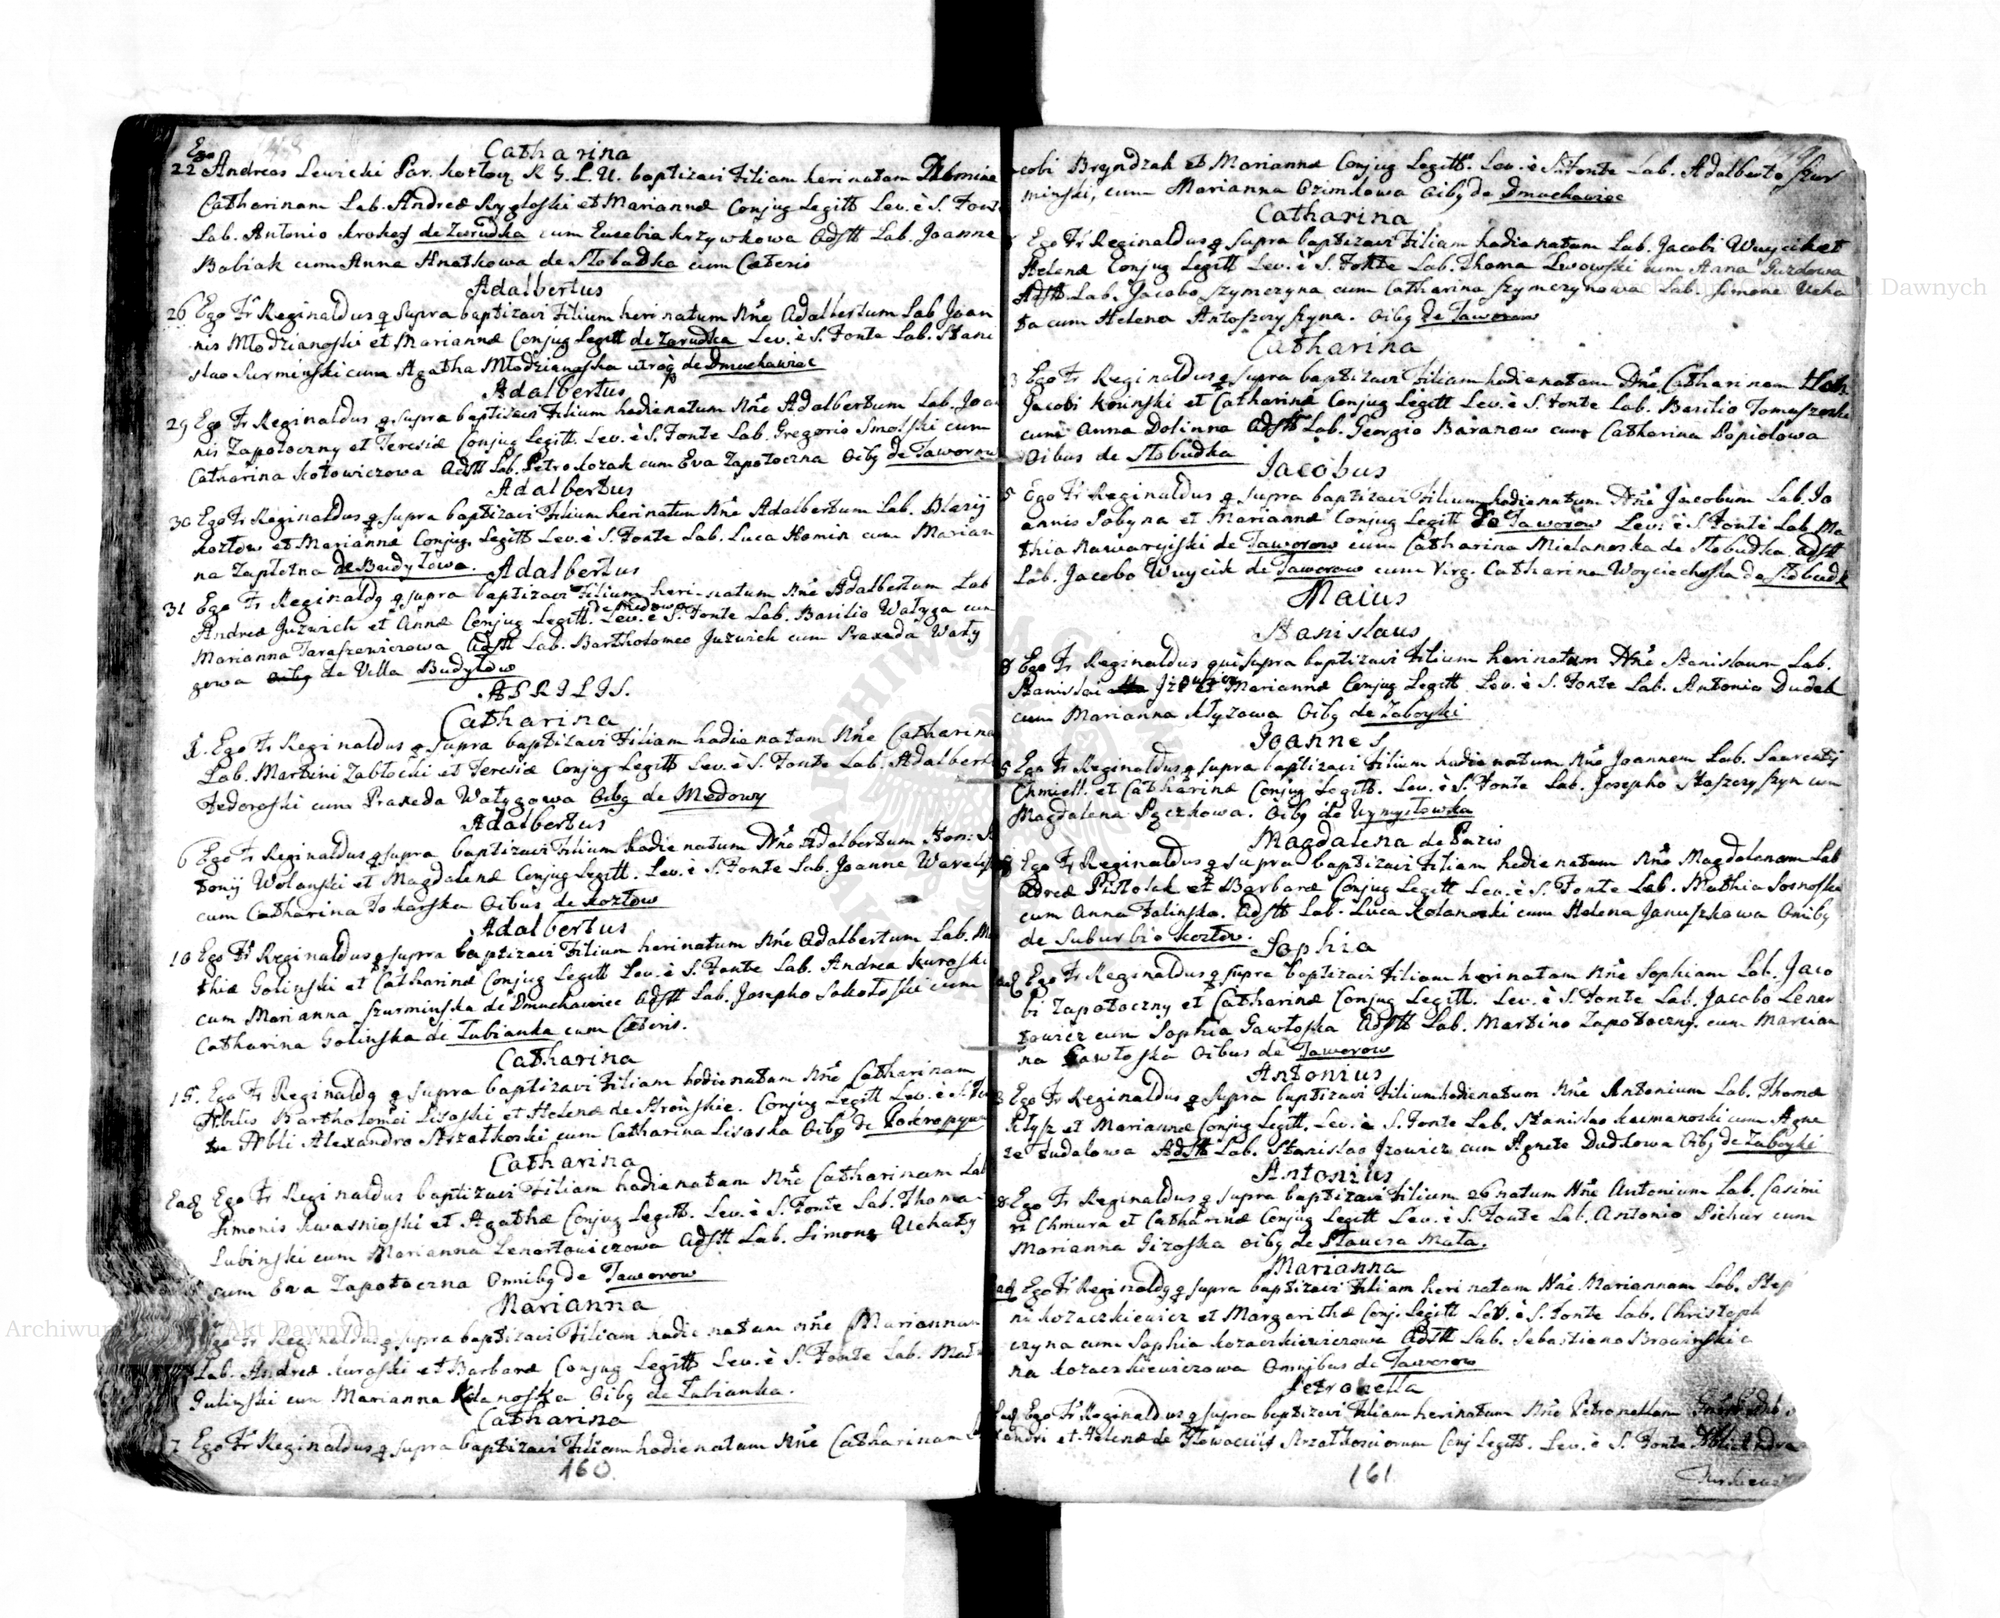 Catharina
22 Ego Andreas Lewicki Par. Kozłov. R G. L. U. baptizavi Filiam heri natam
Catharinam Lab. Andreæ Rygloski et Mariannæ Conjug Legitt Lev. è S. Fonte
Lab. Antonio Krokos de Zarudka cum Eusebia Krzywkowa Adstt Lab. Joanne
Babiak cum Anna Anatkowa de Słobudka cum Cæteris
Adalbertus
26 Ego Fr Reginaldus q supra baptizavi Filium heri natum Nñe Adalbertum Lab Joan
nis Młodzianoski et Mariannæ Conjug Legitt de Zarudka Lev. è S. Fonte Lab. Stani
slao Surminski cum Agatha Młodzianoska utroq de Dmuchawiec
Adalbertus
29 Ego Fr Reginaldus q supra baptizavi Filium hodie natum Nñe Adalbertum Lab. Joa
nis Zapotoczny et Teresiæ Conjug Legitt. Lev. è S. Fonte Lab. Gregorio Smolski cum
Catharina Kotowiczowa Adstt Lab. Petro Kozak cum Eva Zapotoczna Oibq de Jaworow
Adalbertus
30 Ego Fr Reginaldus q supra baptizavi Filium heri natum Nñe Adalbertum Lab. Blasij
Kozłow et Mariannæ Conjug. Legitt Lev. è S. Fonte Lab. Luca Homin cum Marian
na Zapłotna de Budyłowa.
Adalbertus
31 Ego Fr Reginaldq q supra baptizavi Filium heri natum Nñe Adalbertum Lab
Andreæ Juzwich et Annæ Conjug Legitt. Lev. è S. Fonte Lab. Basilio Watyga cum
Marianna Taraszewiczowa Adstt Lab. Bartholomeo Juzwich cum Praxeda Waty
gowa de Villa Budyłow
APRILIS.
Catharina
1. Ego Fr Reginaldus q supra baptizavi Filiam hodie natam Nñe Catharina
Lab. Martini Zabłocki et Teresiæ Conjug Legitt Lev. è S. Fonte Lab. Adalbert
Fedoroski cum Praxeda Watygowa Oibq de Medowy
Adalbertus
6 Ego Fr Reginaldus q supra baptizavi Filium hodie natum Nñe Adalbertum
tonij Wolanski et Magdalenæ Conjug Legitt. Lev. è S. Fonte Lab. Joanne
cum Catharina Tokarska Oibus de Kozłow
Adalbertus
10 Ego Fr Reginaldus q supra baptizavi Filium heri natum Nñe Adalbertum Lab. Ma
thiæ Golinski et Catharinæ Conjug Legitt Lev. è S. Fonte Lab. Andrea Kuroski
cum Marianna Szurminska de Dmuchawiec Adstt Lab. Josepho Sokołoski cum
Catharina Golinska de Łubianka cum Cæteris.
Catharina
15. Ego Fr Reginaldq q supra baptizavi Filiam hodie natam Nñe Catharinam
Nbilis Bartholomei Lisoski et Helenæ de Stronskie. Conjug Legitt Lev. è S. Fon
te Nbli Alexandro Strzałkoski cum Catharina Lisoska Oibq de
Catharina
Eadq Ego Fr Reginaldus baptizavi Filiam hodie natam Nñe Catharinam Lab
Simonis Kwasnioski et Agathæ Conjug Legitt. Lev. è S. Fonte Lab. Thoma
Lubinski cum Marianna Lenartowiczowa Adstt Lab. Simone Uchaty
cum Eva Zapotoczna Omnibq de Jaworow
Marianna
Ego Fr Reginaldus q supra baptizavi Filiam hodie natam Nñe Mariannam
Lab. Andreæ Kuroski et Barbaræ Conjug Legitt Lev. è S. Fonte Lab. Mat
Gulinski cum Marianna Oibq de Łubianka.
Catharina
7 Ego Fr Reginaldus q supra baptizavi Filiam hodie natam Nñe Catharinam
160.
cobi Bryndzak et Mariannæ Conjug Legitt. Lev. è S. Fonte Lab. Adalberto Szur
minski, cum Marianna Ozimkowa Oibq de Dmuchawiec
Catharina
Ego Fr Reginaldus q supra baptizavi Filiam hodie natam Lab. Jacobi Wuycik et
Helenæ Conjug Legitt Lev. è S. Fonte Lab. Thoma Lwowski cum Anna Guzdowa
Adstt. Lab. Jacobo Szymczyna cum Catharina Szymczynowa Lab. Simone Ucha
ta cum Helena Antoszczyszyna. Oibq de Jaworow
Catharina
3 Ego Fr Reginaldus q supra baptizavi Filiam hodie natam Nñe Catharinam Lab.
Jacobi Kosinski et Catharinæ Conjug Legitt Lev. è S. Fonte Lab. Basilio
cum Anna Dolinna Adstt Lab. Georgio Baranow cum Catharina Popiolowa
Oibus de Słobudka
Jacobus
5 Ego Fr Reginaldus q supra baptizavi Filium hodie natum Nñe Jacobum Lab. Jo
annis Sobyna et Mariannæ Conjug Legitt de Jaworow Lev. è S. Fonte Lab Ma
thia Nawaryiski de Jaworow cum Catharina Mielanoska de Słobudka. Adstt
Lab. Jacobo Wuycik de Jaworow cum Virg. Catharina Woyciechoska de Słobudk
Maius
Stanislaus
8 Ego Fr Reginaldus qui supra baptizavi Filium heri natum Nñe Stanislaum Lab.
Stanislai et Mariannæ Conjug Legitt Lev. è S. Fonte Lab. Antonio Dudek
cum Marianna Kłyzowa Oibq de Zaboyki
Joannes
5 Ego Fr Reginaldus q supra baptizavi Filium hodie natum Nñe Joannem Lab. Laurentij
Chmiell. et Catharinæ Conjug Legitt. Lev. è S. Fonte Lab. Josepho Staszczyszyn cum
Magdalena Pęczkowa. Oibq de Wymysłowka
Magdalena de Pazis
Ego Fr Reginaldus q supra baptizavi Filiam hodie natam Nñe Magdalenam Lab
Andreæ Pistolak et Barbaræ Conjug Legitt Lev. è S. Fonte Lab. Mathia Sosnoski
cum Anna Falinska. Adstt Lab. Luca Kolanoski cum Helena Januszkowa Omibq
de Suburbio Kozłow.
Sophia
Eadq Ego Fr Reginaldus q supra baptizavi Filiam heri natam Nñe Sophiam Lab. Jaco
bi Zapotoczny et Catharinæ Conjug Legitt. Lev. è S. Fonte Lab. Jacobo Lenar
towicz cum Sophia Gawłoska Adstt Lab. Martino Zapotoczny. cum Marian
na Gawłoska Oibus de Jaworow
Antonius
Ego Fr Reginaldus q supra baptizavi Filium hodie natum Nñe Antonium Lab. Thomæ
Kłysz et Mariannæ Conjug Legitt. Lev. è S. Fonte Lab. Stanislao Kaimanoski cum Agne
te Fudalowa Adstt Lab. Stanislao Jzowicz cum Agnete Dudkowa Oibq de Zaboyki
Antonius
8 Ego Fr Reginaldus q supra baptizavi Filium 26 natum Nñe Antonium Lab. Casimi
ri Chmura et Catharinæ Conjug Legitt Lev. è S. Fonte Lab. Antonio Pichur cum
Marianna Gizoska Oibq de Sławcza Mała.
Marianna
Eadq Ego Fr Reginaldq q supra baptizavi Filiam heri natam Nñe. Mariannam Lab. Step
ni Kozaczkiewicz et Margarithæ Conj. Legitt Lev. è S. Fonte Lab. Christoph
czyna cum Sophia Kozaczkiewiczowa Adstt Lab. Sebastiano Browinski c
na Kozaczkiewiczowa Omnibus de Jaworow
Petronella
Eadq Ego Fr Reginaldus q supra baptizavi Filiam heri natam Nñe Petronellam
xandri et Helenæ de Głowackijs Strzałkosciorum Conj Legitt. Lev. è S. Fonte
161